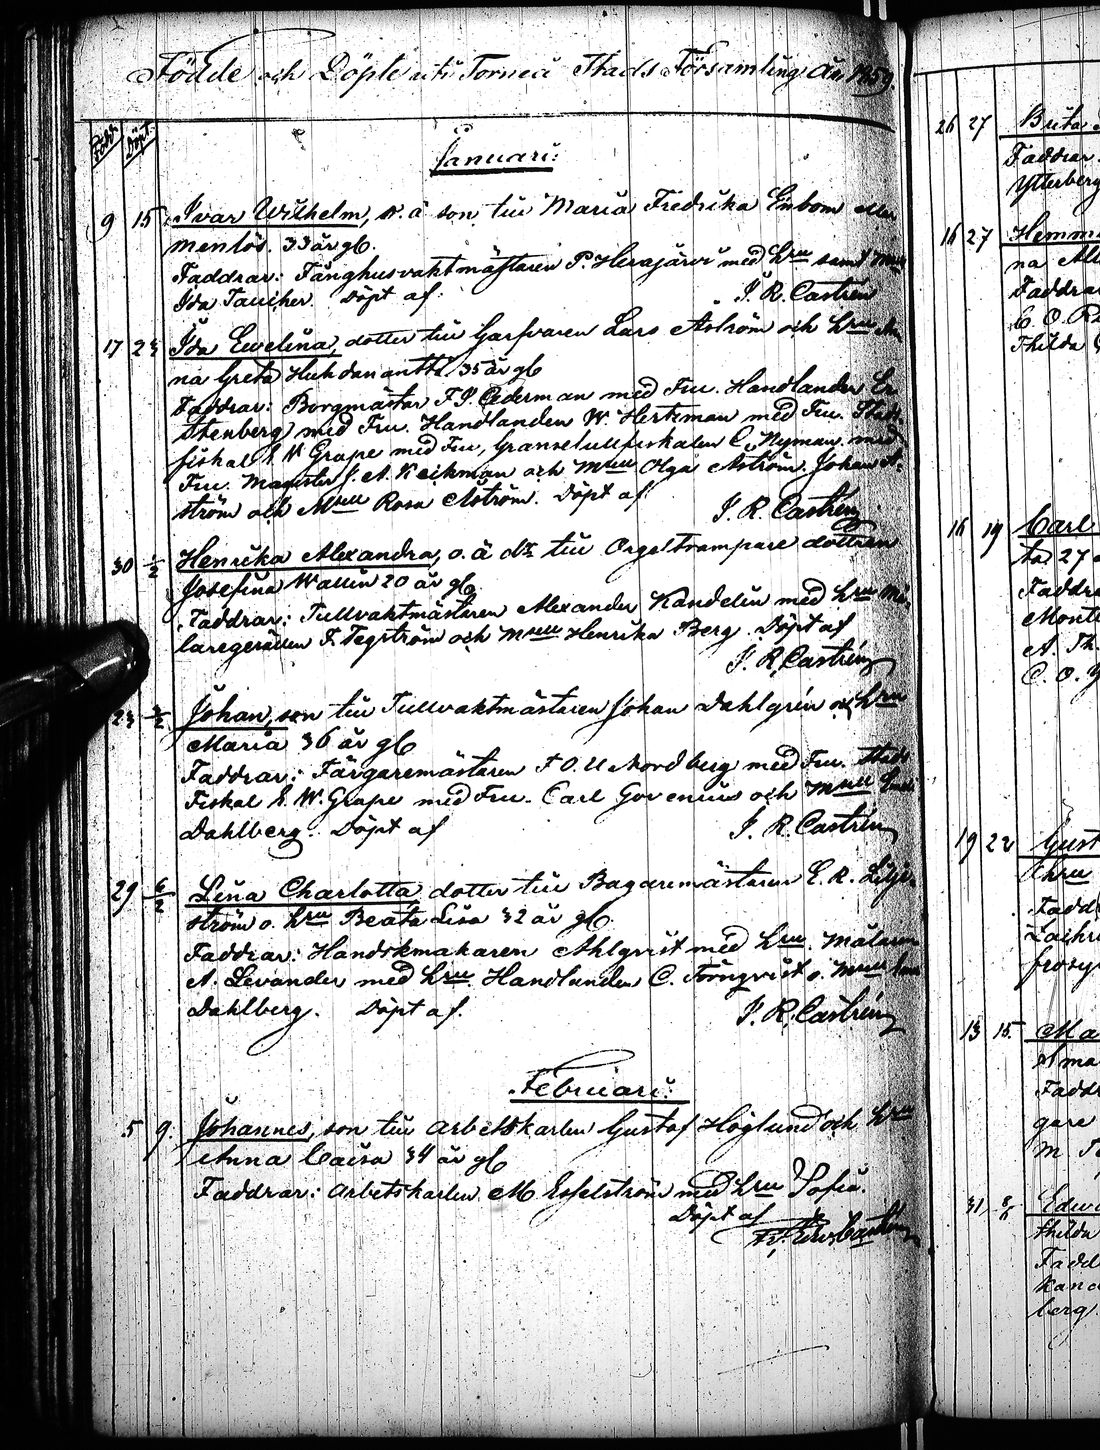 Födde och Döpte uti Torneå Stads Församling År 1859.
Född Döpt
Januari:
9 15 Ivar Wilhelm, o. ä son till Maria Fredrika Enbom
33 år gl.
Faddrar: Fånghusvaktmästaren P. Herajärvi med hru samt Mlle
Ida Taucher. Döpt af:
J. R. Castrén
17 23 Ida Ewelina, dotter till Garfvaren Lars Aström och hru An
na Greta 35 år gl
Faddrar: Borgmästar F. J. Cederman med Fru. Handlanden Er.
Stenberg med Fru. Handlanden W. Hertzman med Fru. Stads
fiskal E W Grape med Fru, Gränsetullfiskalen C. Nyman med
Fru. Magister J. A. Veikman och Mlle Olga Aström. Johan A-
ström och Mlle Rosa Aström. Döpt af:
J. R. Castrén
30 1/2 Henrika Alexandra, o. ä dr till Orgeltrampare dottren
Josefina Wallin 20 år gl
Faddrar: Tullvaktmästaren Alexander Kandelin med hru Må-
laregesällen F. Tegström och Mlle Henrika Berg. Döpt af
J. R. Castrén
23 2/2 Johan, son till Tullvaktmästaren Johan Dahlgrén och hru
Maria 36 år gl
Faddrar: Färgaremästaren F O. U Nordberg med Fru. Stads
Fiskal E. W. Grape med Fru. Carl Govenius och Mlle
Dahlberg. Döpt af
J. R. Castrén
29 6/2 Lena Charlotta, dotter till Bagaremästaren E. R. Lilje-
ström o. hru Beata Lisa 32 år gl.
Faddrar: Handskmakaren Ahlqvist med hru. Målaren
A. Levander med hru. Handlanden C. Törnqvist o. Mlle
Dahlberg. Döpt af.
J. R. Castrén
Februari:
5 9. Johannes, son till arbetskarlen Gustaf Höglund och hru
Anna Caisa 34 år gl
Faddrar: arbetskarlen M. Esselström med hru Sofia.
Döpt af
Castrén
26 27 Brita
Faddrar
Ytterberg
16 27 Hemm
na
Faddrar
C. O.
Thilda
16 19 Carl
27
Faddra
A. Th.
C. O.
19 22 Gust
hru
Fadd
13 15. Ma
Fadd
gare
M.
31 Edw
thilda
Fadd
Kand
berg.